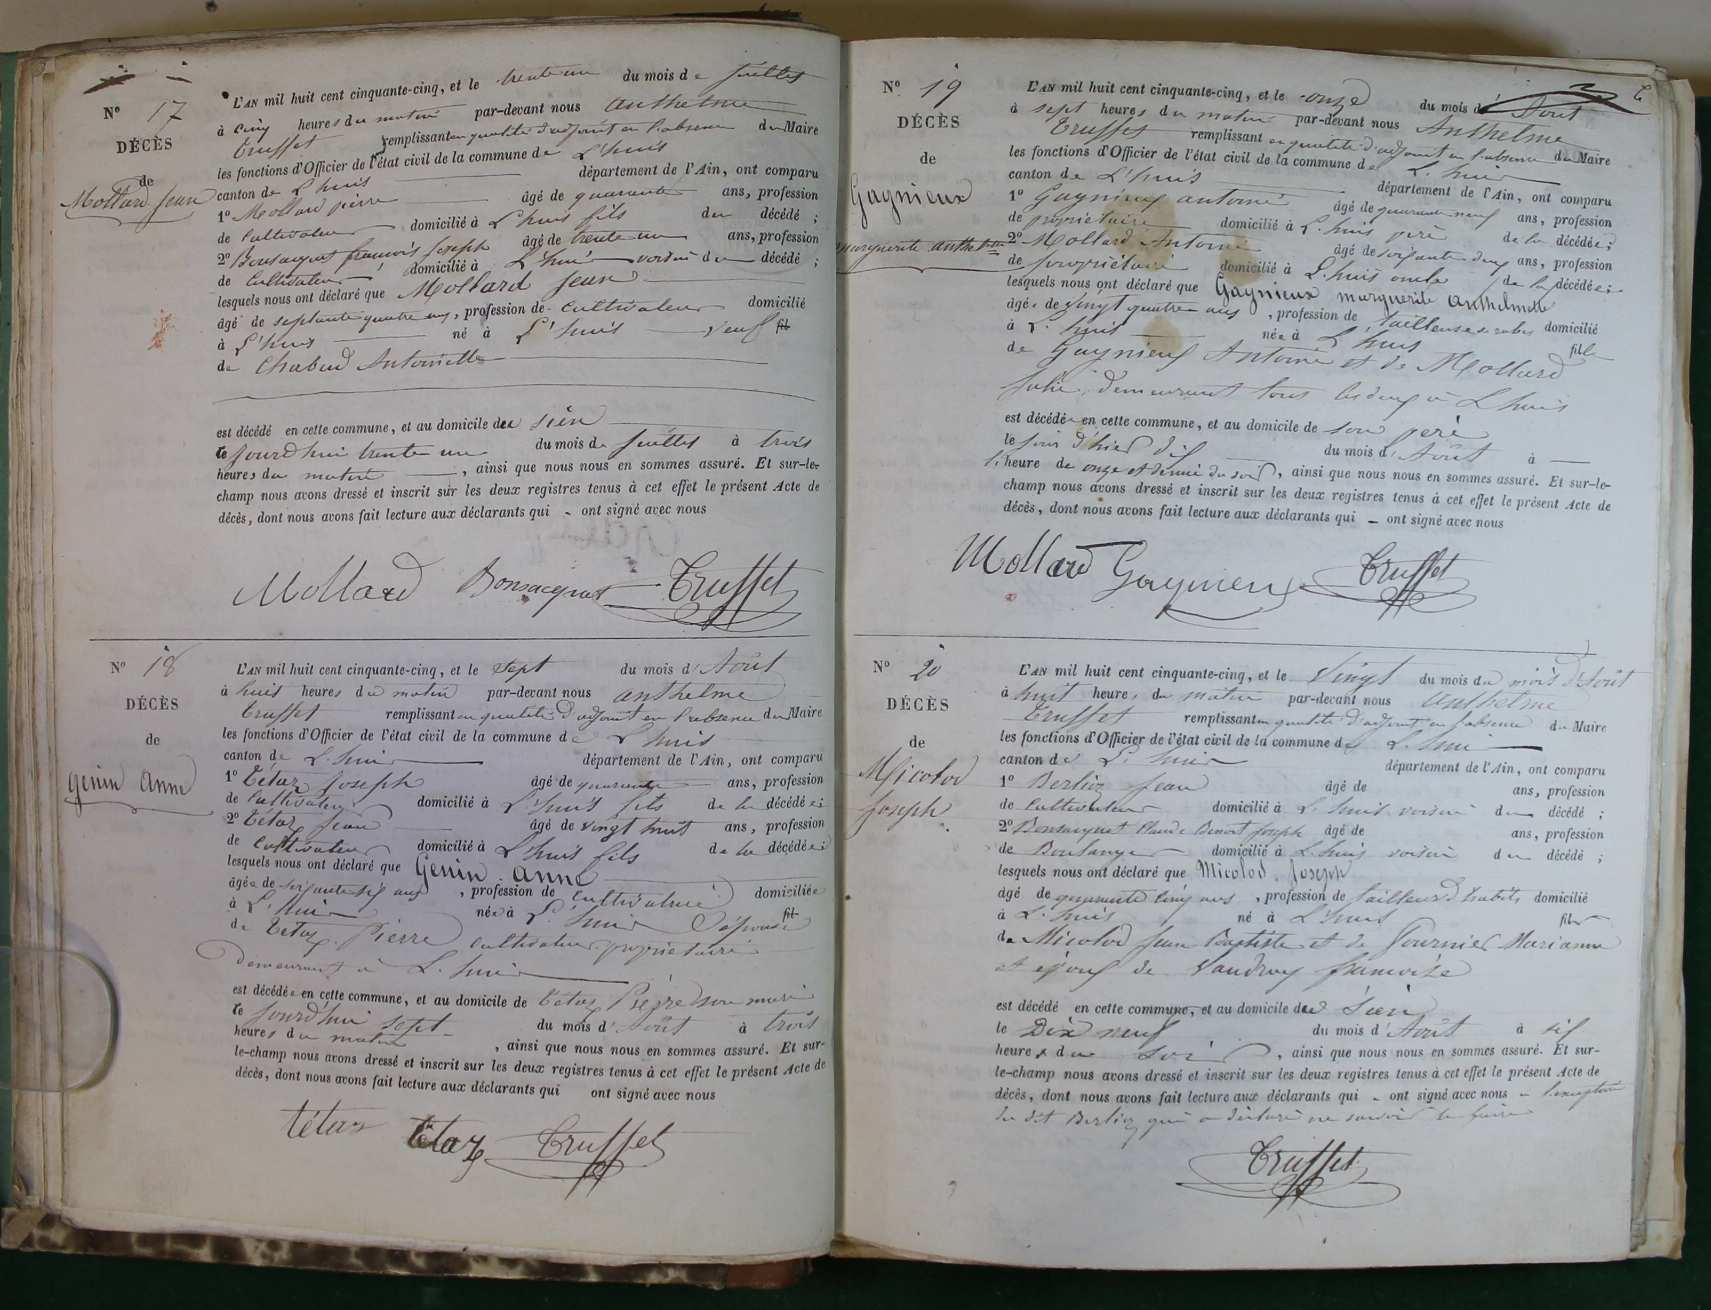 N° 17
DÉCÈS
de
Mollard Jean
L'AN mil huit cent cinquante-cinq, et le trente un du mois de juillet
à cinq heures du matin par-devant nous anthelme
Truffet remplissant en qualité d'adjoint en l'absence du Maire
les fonctions d'Officier de l'état civil de la commune de L'huis
canton de L'huis département de l'Ain, ont comparu
1° Mollard pierre âgé de quarante ans, profession
de cultivateur domicilié à L'huis fils du décédé ;
2° Bonsacquet françois joseph âgé de trente un ans, profession
de cultivateur domicilié à L'huis voisin du décédé ;
lesquels nous ont déclaré que Mollard Jean
âgé de septante quatre ans, profession de cultivateur domicilié
à L'huis né à L'huis veuf fil
de Chabud Antoinette
est décédé en cette commune, et au domicile de sien
le jourd'hui trente un du mois de juillet à trois
heures du matin, ainsi que nous nous en sommes assuré. Et sur-le-
champ nous avons dressé et inscrit sur les deux registres tenus à cet effet le présent Acte de
décès, dont nous avons fait lecture aux déclarants qui - ont signé avec nous
Mollard Bonsacquet Truffet
N° 18
DÉCÈS
de
genin anne
L'AN mil huit cent cinquante-cinq, et le sept du mois d'Août
à huit heures du matin par-devant nous anthelme
Truffet remplissant en qualité d'adjoint en l'absence du Maire
les fonctions d'Officier de l'état civil de la commune de L'huis
canton de L'huis département de l'Ain, ont comparu
1° Tétaz Joseph âgé de quarante ans, profession
de cultivateur domicilié à L'huis fils de la décédée ;
2° Tétaz Jean âgé de vingt huit ans, profession
de cultivateur domicilié à L'huis fils de la décédée ;
lesquels nous ont déclaré que Genin anne
âgée de soixante six ans, profession de cultivatrice domiciliée
à L'huis née à L'huis l'épouse fil
de Tétaz Pierre cultivateur propriétaire
demeurant à L'huis
est décédée en cette commune, et au domicile de tétaz Pierre son mari
le jourd'hui sept du mois d'Août à trois
heures du matin, ainsi que nous nous en sommes assuré. Et sur-
le-champ nous avons dressé et inscrit sur les deux registres tenus à cet effet le présent Acte de
décès, dont nous avons fait lecture aux déclarants qui ont signé avec nous
tétaz tétaz Truffet
N° 19
DÉCÈS
de
Gagnieux
marguerite anthelmette
L'AN mil huit cent cinquante-cinq, et le onze du mois d'Août
à sept heures du matin par-devant nous Anthelme
Truffet remplissant en qualité d'adjoint en l'absence du Maire
les fonctions d'Officier de l'état civil de la commune de L'huis
canton de L'huis département de l'Ain, ont comparu
1° Gagnieux antoine âgé de quarante neuf ans, profession
de propriétaire domicilié à L'huis père de la décédée ;
2° Mollard Antoine âgé de soixante deux ans, profession
de propriétaire domicilié à L'huis oncle de la décédée ;
lesquels nous ont déclaré que Gagnieux marguerite anthelmette
âgée de vingt quatre ans, profession de tailleuse de robes domicilié
à L'huis née à L'huis fille
de Gagnieux Antoine et de Mollard
Julie, demeurant tous les deux à Lhuis
est décédée en cette commune, et au domicile de son père
le jour d'hier dix du mois d'Août à
l'heure de onze et demie du soir, ainsi que nous nous en sommes assuré. Et sur-le-
champ nous avons dressé et inscrit sur les deux registres tenus à cet effet le présent Acte de
décès, dont nous avons fait lecture aux déclarants qui - ont signé avec nous
Mollard Gagnieux Truffet
N° 20
DÉCÈS
de
Micolod
Joseph
L'AN mil huit cent cinquante-cinq, et le vingt du mois du mois d'Août
à huit heures du matin par-devant nous Anthelme
Truffet remplissant en qualité d'adjoint en l'absence du Maire
les fonctions d'Officier de l'état civil de la commune de L'huis
canton de L'huis département de l'Ain, ont comparu
1° Berlioz Jean âgé de ans, profession
de Cultivateur domicilié à L'huis voisin du décédé ;
2° Bonsacquet Claude Benoit Joseph âgé de ans, profession
de Boulanger domicilié à L'huis voisin du décédé ;
lesquels nous ont déclaré que Micolod Joseph
âgé de quarante cinq ans, profession de tailleur d'habits domicilié
à L'huis né à L'huis fils
de Micolod Jean Baptiste et de Fournier Marianne
et époux de Vaudray françoise
est décédé en cette commune, et au domicile de sien
le Dix neuf du mois d'Août à six
heures du soir, ainsi que nous nous en sommes assuré. Et sur-
le-champ nous avons dressé et inscrit sur les deux registres tenus à cet effet le présent Acte de
décès, dont nous avons fait lecture aux déclarants qui - ont signé avec nous à l'exception
du dit Berlioz qui a déclaré ne savoir le faire
Truffet